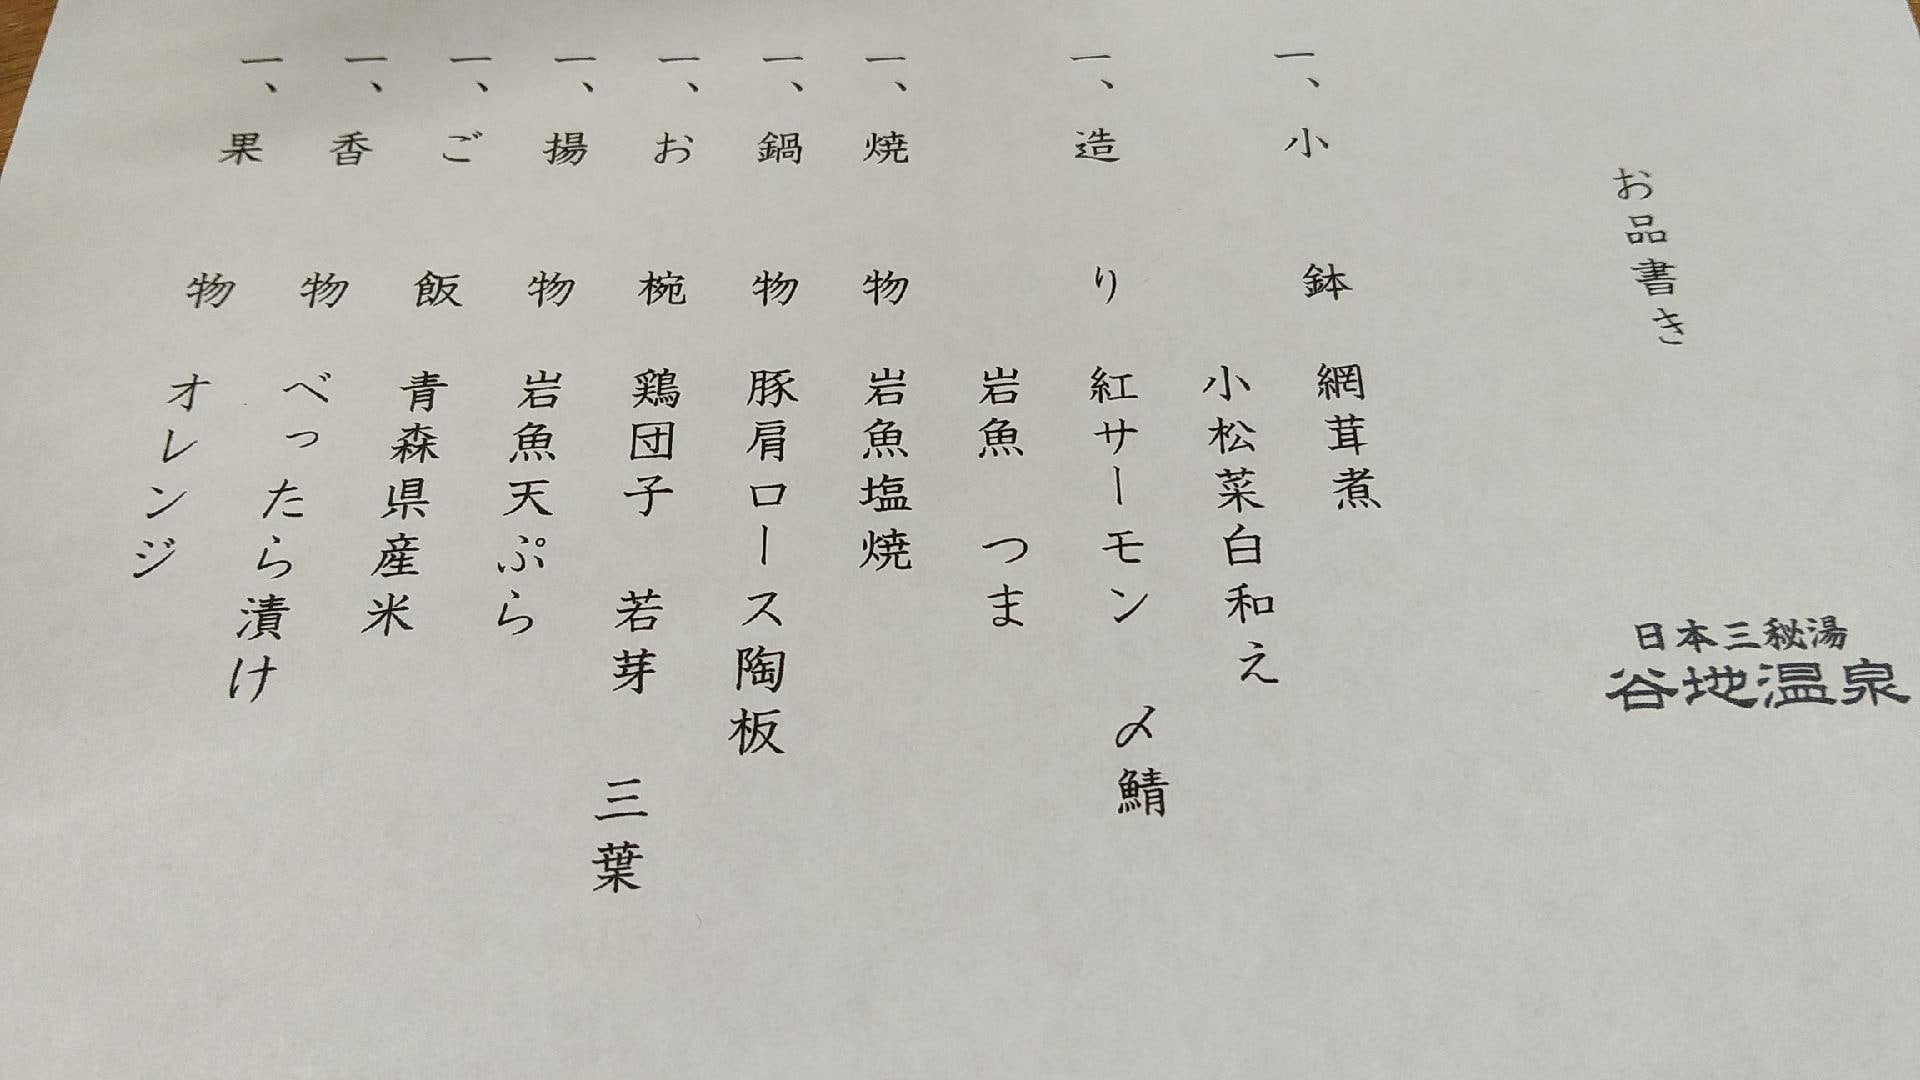 お品書き
日本三秘湯
谷地温泉
一、小鉢 網茸煮
小松菜白和え
一、造り 紅サーモン 〆鯖
岩魚 つま
一、焼物 岩魚塩焼
一、鍋物 豚肩ロース陶板
一、お椀 鶏団子 若芽 三葉
一、揚物 岩魚天ぷら
一、ご飯 青森県産米
一、香物 べったら漬け
一、果物 オレンジ